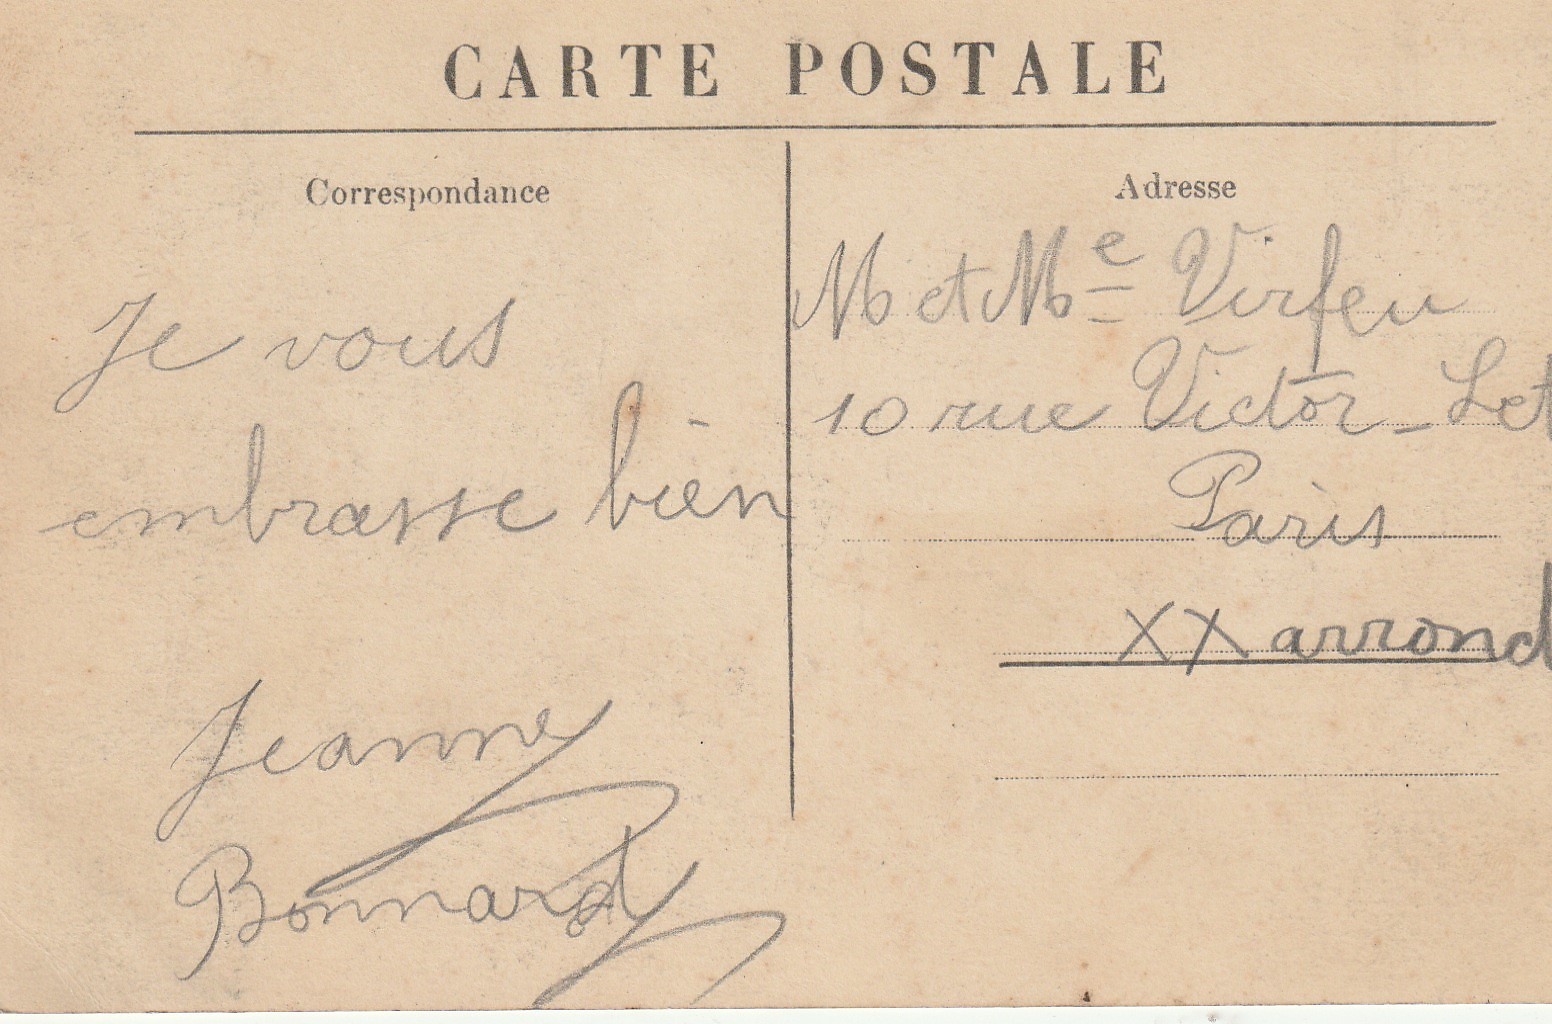 CARTE POSTALE
Correspondance
Je vous
embrasse bien
Jeanne
Bonnard
Adresse
M et Me Virfeu
10 rue Victor-Let
Paris
XX arrond